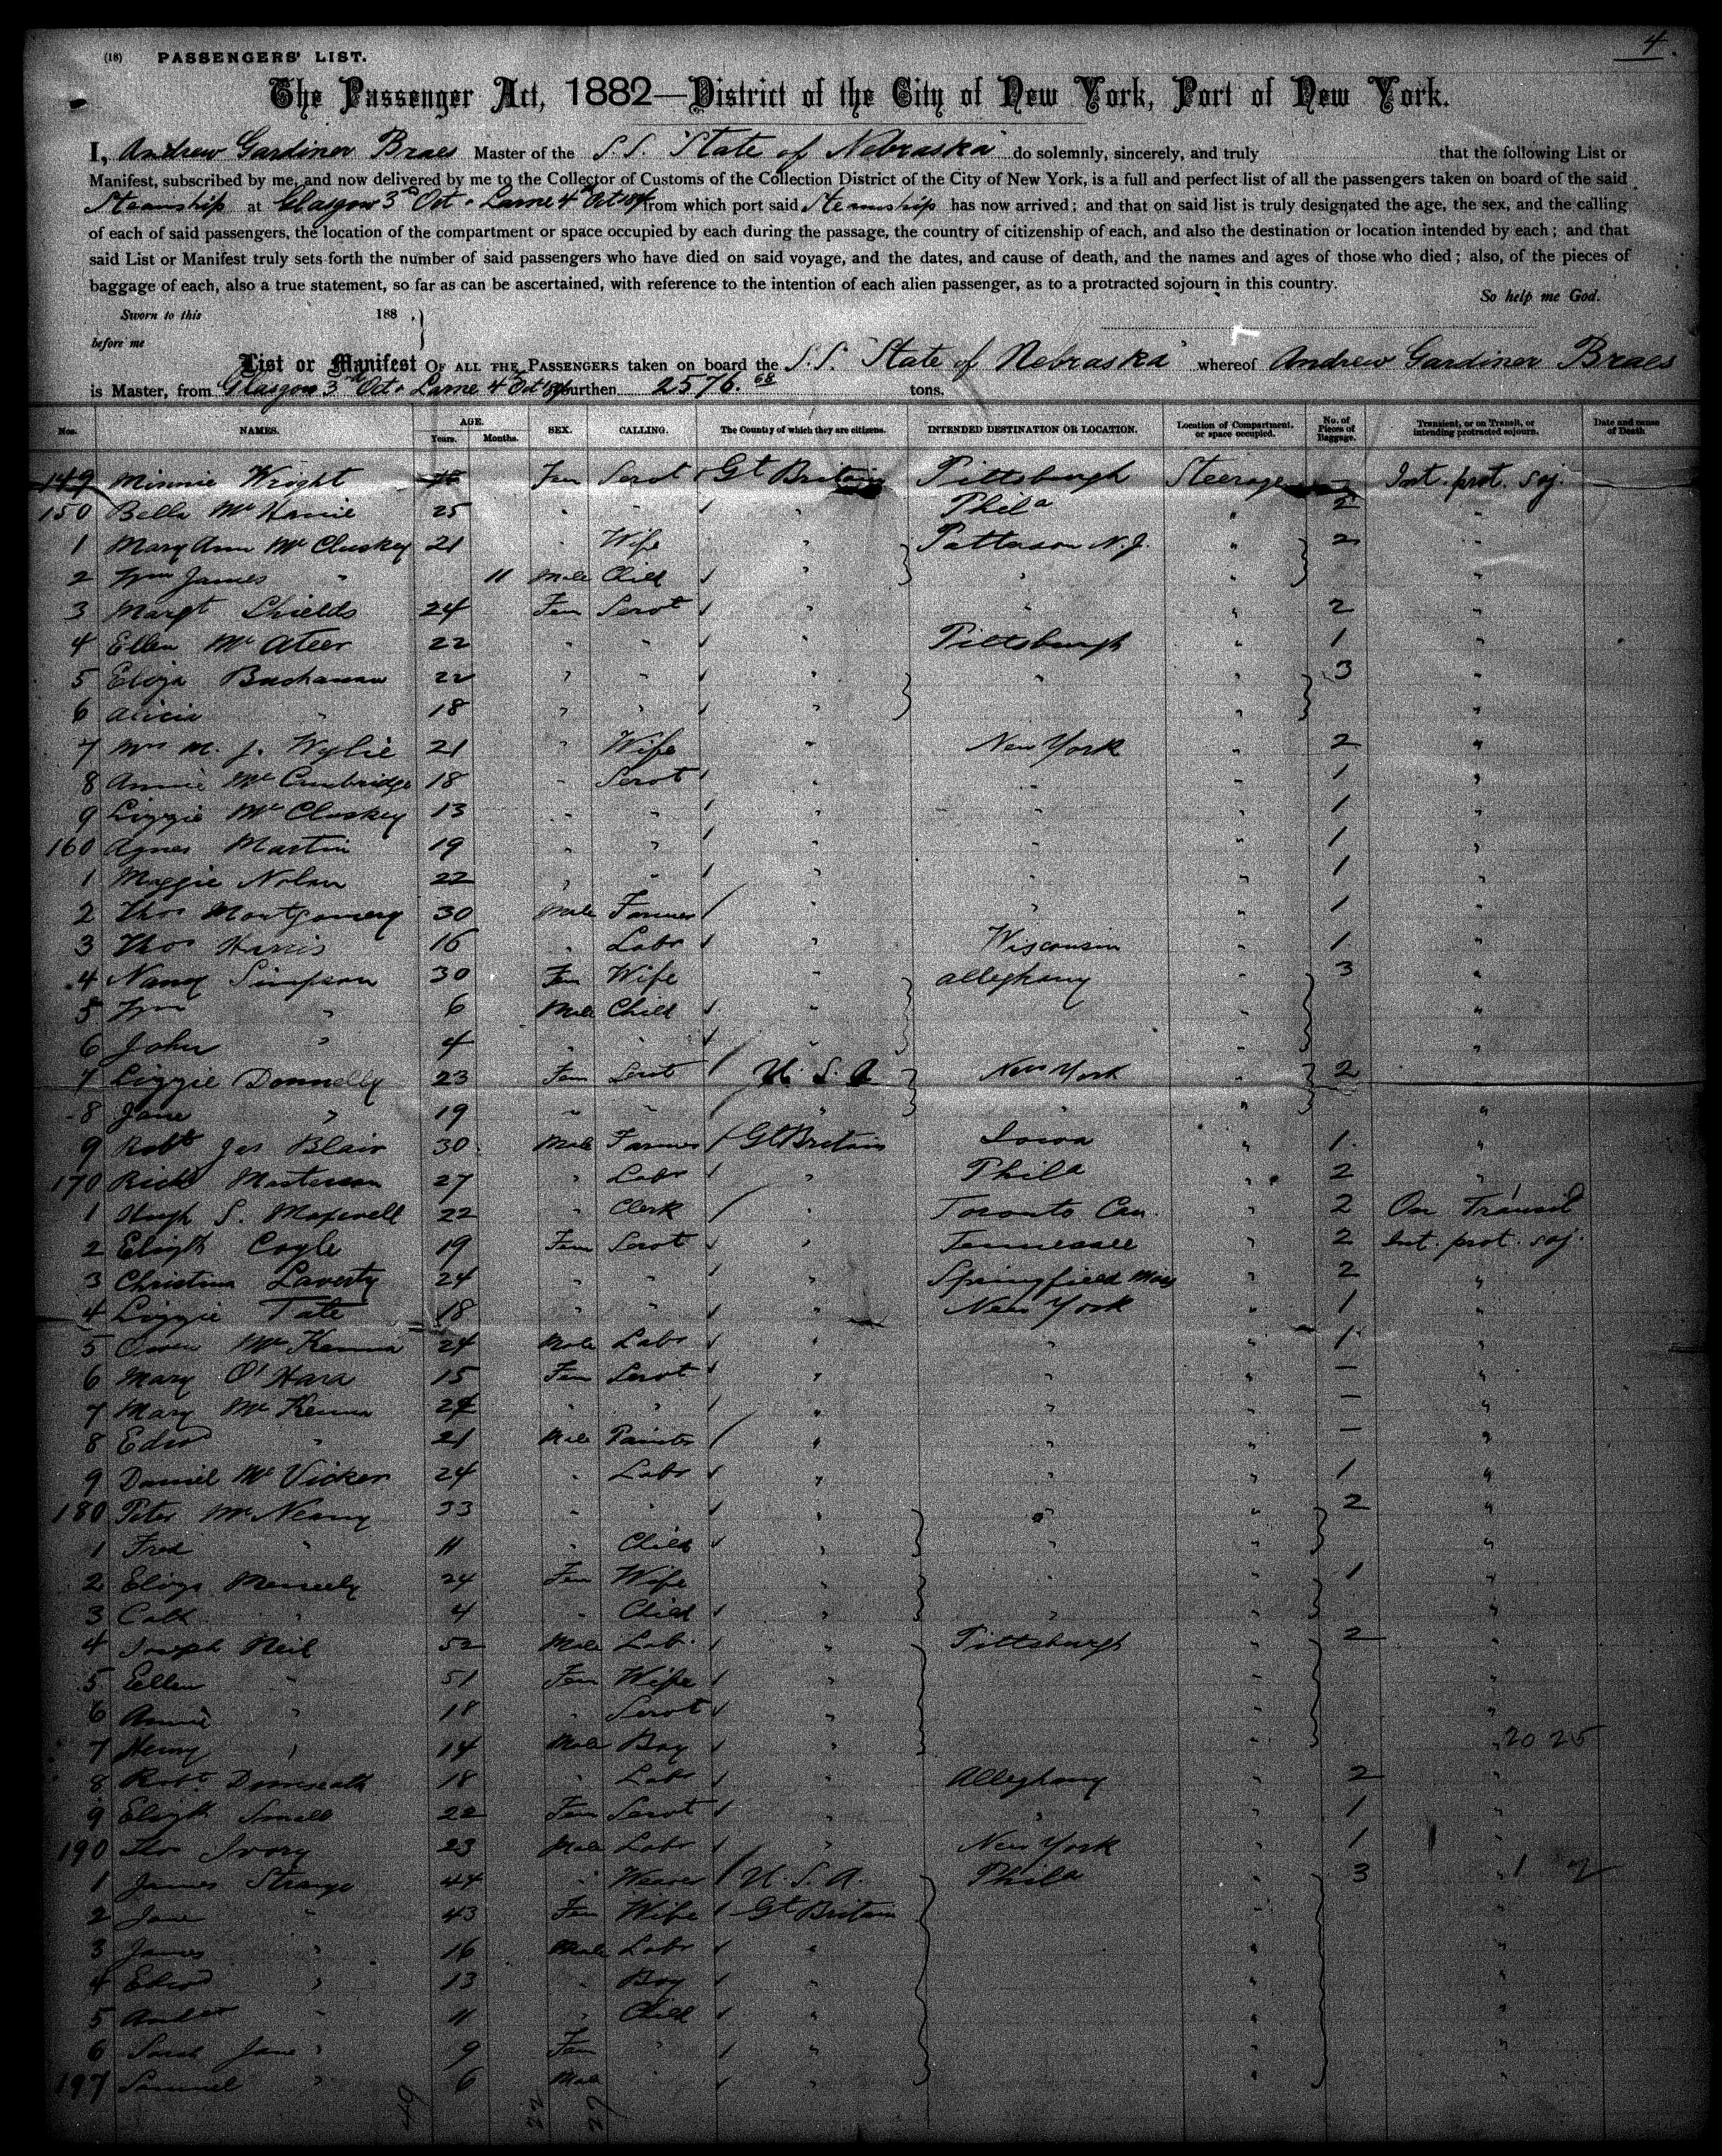 4.
(18) PASSENGERS' LIST.
The Passenger Act, 1882—District of the City of New York, Port of New York.
I, Andrew Gardiner Braes Master of the S.S. "State of Nebraska" do solemnly, sincerely, and truly that the following List or
Manifest, subscribed by me, and now delivered by me to the Collector of Customs of the Collection District of the City of New York, is a full and perfect list of all the passengers taken on board of the said
Steamship at Glasgow 3rd Oct & Larne 4th Oct from which port said Steamship has now arrived; and that on said list is truly designated the age, the sex, and the calling
of each of said passengers, the location of the compartment or space occupied by each during the passage, the country of citizenship of each, and also the destination or location intended by each; and that
said List or Manifest truly sets forth the number of said passengers who have died on said voyage, and the dates, and cause of death, and the names and ages of those who died; also, of the pieces of
baggage of each, also a true statement, so far as can be ascertained, with reference to the intention of each alien passenger, as to a protracted sojourn in this country.
So help me God.
Sworn to this 188 .
before me
List or Manifest OF ALL THE PASSENGERS taken on board the S.S. "State of Nebraska" whereof Andrew Gardiner Braes
is Master, from Glasgow 3rd Oct & Larne 4th Oct burthen 2576.68 tons.
Nos. NAMES. AGE. Years. Months. SEX. CALLING. The Country of which they are citizens. INTENDED DESTINATION OR LOCATION. Location of Compartment, or space occupied. No. of Pieces of Baggage. Transient, or on Transit, or intending protracted sojourn. Date and cause of Death
149 Minnie Wright Fem Servt Gt Britain Pittsburgh Steerage Int. prot. soj.
150 Bella 25 " " " Phila " 2 "
1 Mary Ann McCluskey 21 " Wife " Patterson N.J. " 2 "
2 Wm James " 11 Male Child " " " "
3 Margt Shields 24 Fem Servt " " " 2 "
4 Ellen McAteer 22 " " " Pittsburgh " 1 "
5 Eliza Buchanan 22 " " " " " 3 "
6 Alicia " 18 " " " " "
7 Mrs M. J. Wylie 21 " Wife " New York " 2 "
8 Annie McCambridge 18 " Servt " " " 1 "
9 Lizzie McCluskey 13 " " " " " 1 "
160 Agnes Martin 19 " " " " " 1 "
1 Maggie Nolan 22 " " " " " 1 "
2 Thos Montgomery 30 Male Farmer " " " 1 "
3 Thos Harris 16 " Labr " Wisconsin " 1 "
4 Nancy Simpson 30 Fem Wife " Alleghany " 3 "
5 Wm " 6 Male Child " " "
6 John " 4 " " " " "
7 Lizzie Donnelly 23 Fem Servt U.S.A New York " 2
8 Jane " 19 " " " " " "
9 Robt Jas Blair 30 Male Farmer Gt Britain Iowa " 1 "
170 Richd Masterson 27 " Labr " Phila " 2 "
1 Hugh S. Maxwell 22 " Clerk " Toronto Can. " 2 On Transit
2 Elizth Coyle 19 Fem Servt " Tennessee " 2 Int. prot. soj.
3 Christina Laverty 24 " " " Springfield Mass " 2 "
4 Lizzie Tate 18 " " " New York " 1 "
5 Owen McKenna 24 Male Labr " " " 1 "
6 Mary O'Hara 15 Fem Servt " " " — "
7 Mary McKenna 24 " " " " " — "
8 Edwd " 21 Male Painter " " " — "
9 Daniel McVicker 24 " Labr " " " 1 "
180 Peter 33 " " " " " 2 "
1 Fred " 11 " Child " " " "
2 Eliza 24 Fem Wife " " " 1 "
3 Cath " 4 " Child " " " "
4 Joseph Neil 52 Male Lab. " Pittsburgh " 2 "
5 Ellen " 51 Fem Wife " " "
6 Annie " 18 " Servt " " "
7 Henry " 14 Male Boy " " " 20 25
8 Robt 18 " Labr " Alleghany " 2 "
9 Elizth Small 22 Fem Servt " " " 1 "
190 Ivory 23 Male Labr " New York " 1 "
1 James Strange 44 " Weaver U.S.A. Phila 3 " 1 2
2 Jane " 43 Fem Wife Gt Britain " "
3 James " 16 Male Labr " " "
4 Edwd " 13 " Boy " " "
5 " 11 " Child " " "
6 Sarah Jane " 9 Fem " " " "
197 Samuel " 6 Male " " "
49 22 27